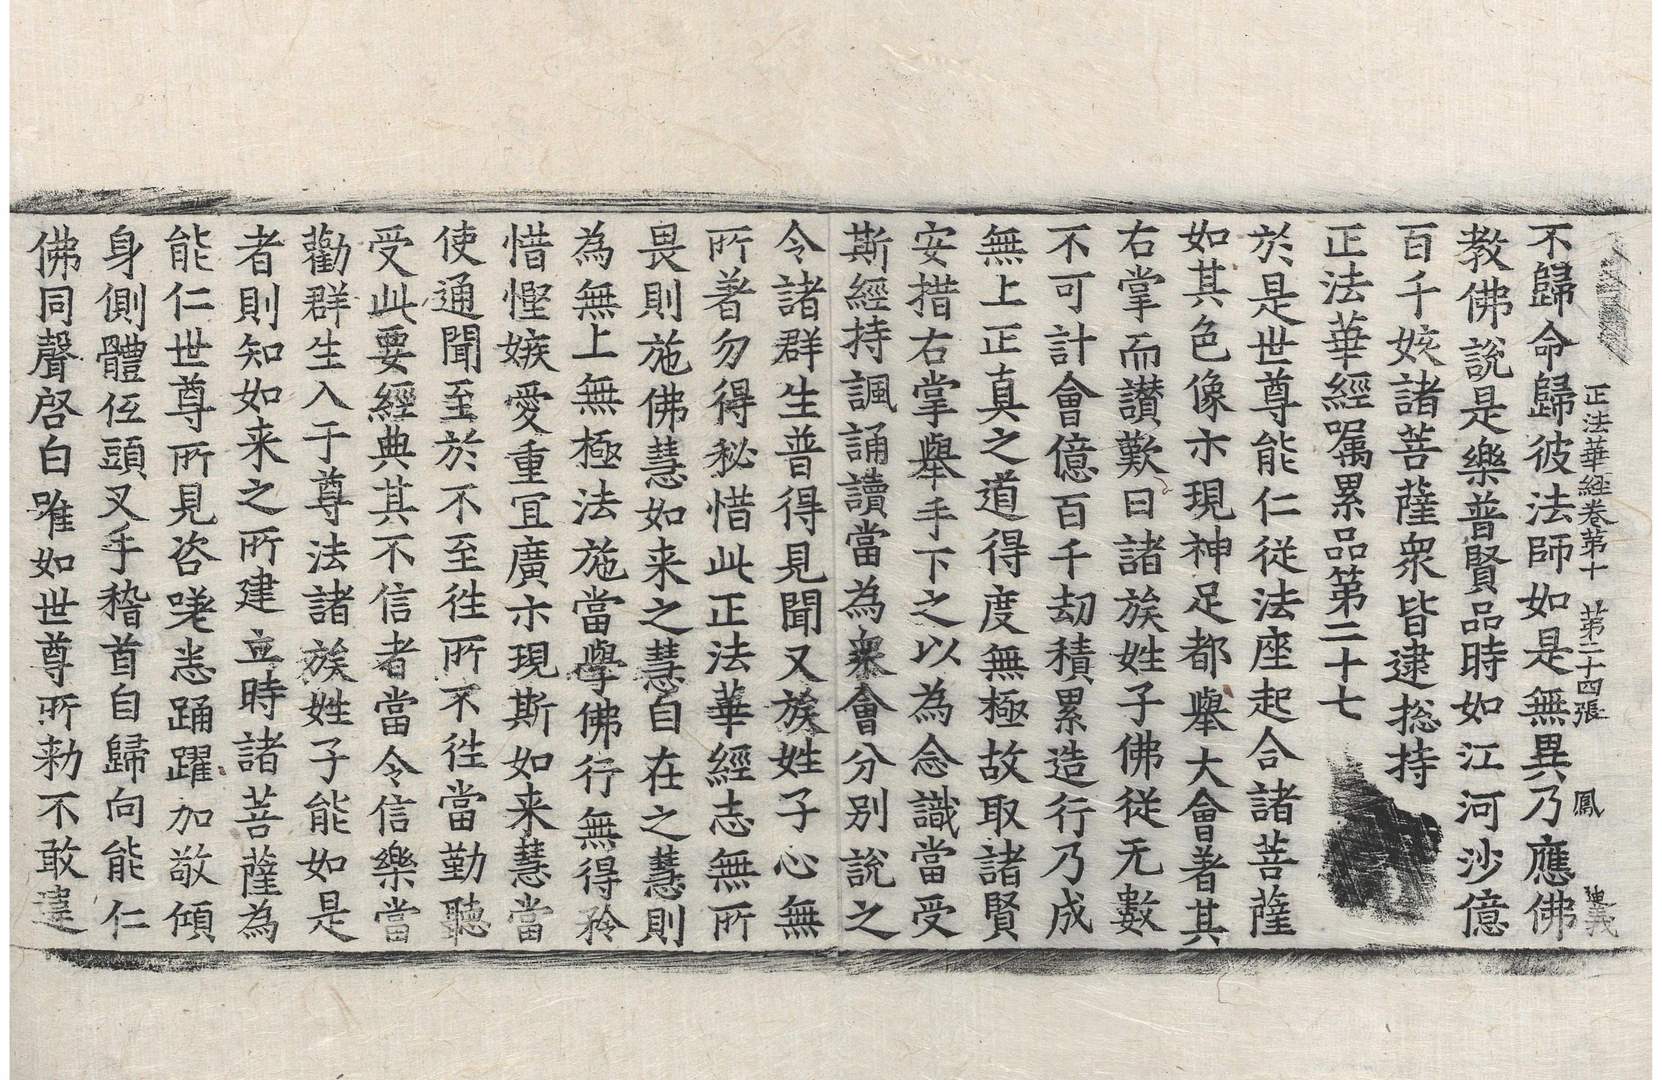 正法華經卷第十 第二十四張 鳳
不歸命歸彼法師如是無異乃應佛
教佛說是樂普賢品時如江河沙億
百千姟諸菩薩衆皆逮揔持
正法華經嘱累品第二十七
於是世尊能仁従法座起合諸菩薩
如其色像亦現神足都舉大會著其
右掌而讃歎曰諸族姓子佛従无數
不可計會億百千劫積累造行乃成
無上正真之道得度無極故取諸賢
安措右掌舉手下之以為念識當受
斯經持諷誦讀當為衆會分别說之
令諸群生普得見聞又族姓子心無
所著勿得秘惜此正法華經志無所
畏則施佛慧如来之慧自在之慧則
為無上無極法施當學佛行無得矜
惜慳嫉愛重宜廣亦現斯如来慧當
使通聞至於不至徃所不徃當勤聽
受此要經典其不信者當令信樂當
勸群生入于尊法諸族姓子能如是
者則知如来之所建立時諸菩薩為
能仁世尊所見咨嗟恙踊躍加敬傾
身側體伍頭叉手稽首自歸向能仁
佛同聲啓白唯如世尊所勑不敢違